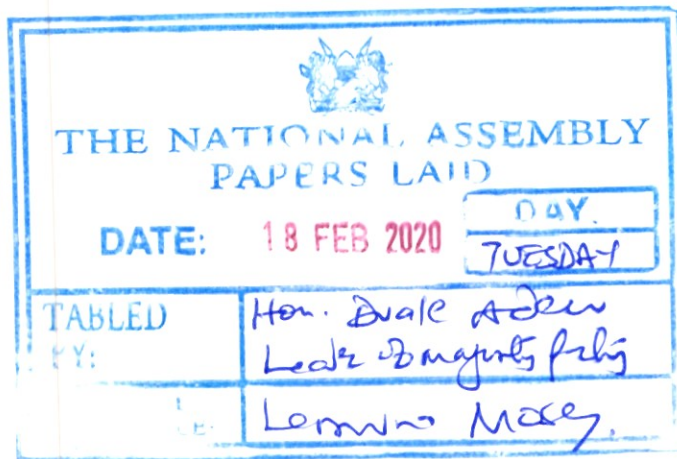 THE NATIONAL ASSEMBLY
PAPERS LAID
DATE: 18 FEB 2020
DAY.
TUESDAY
TABLED BY:
Hon. Duale Aden
Leader of majority party